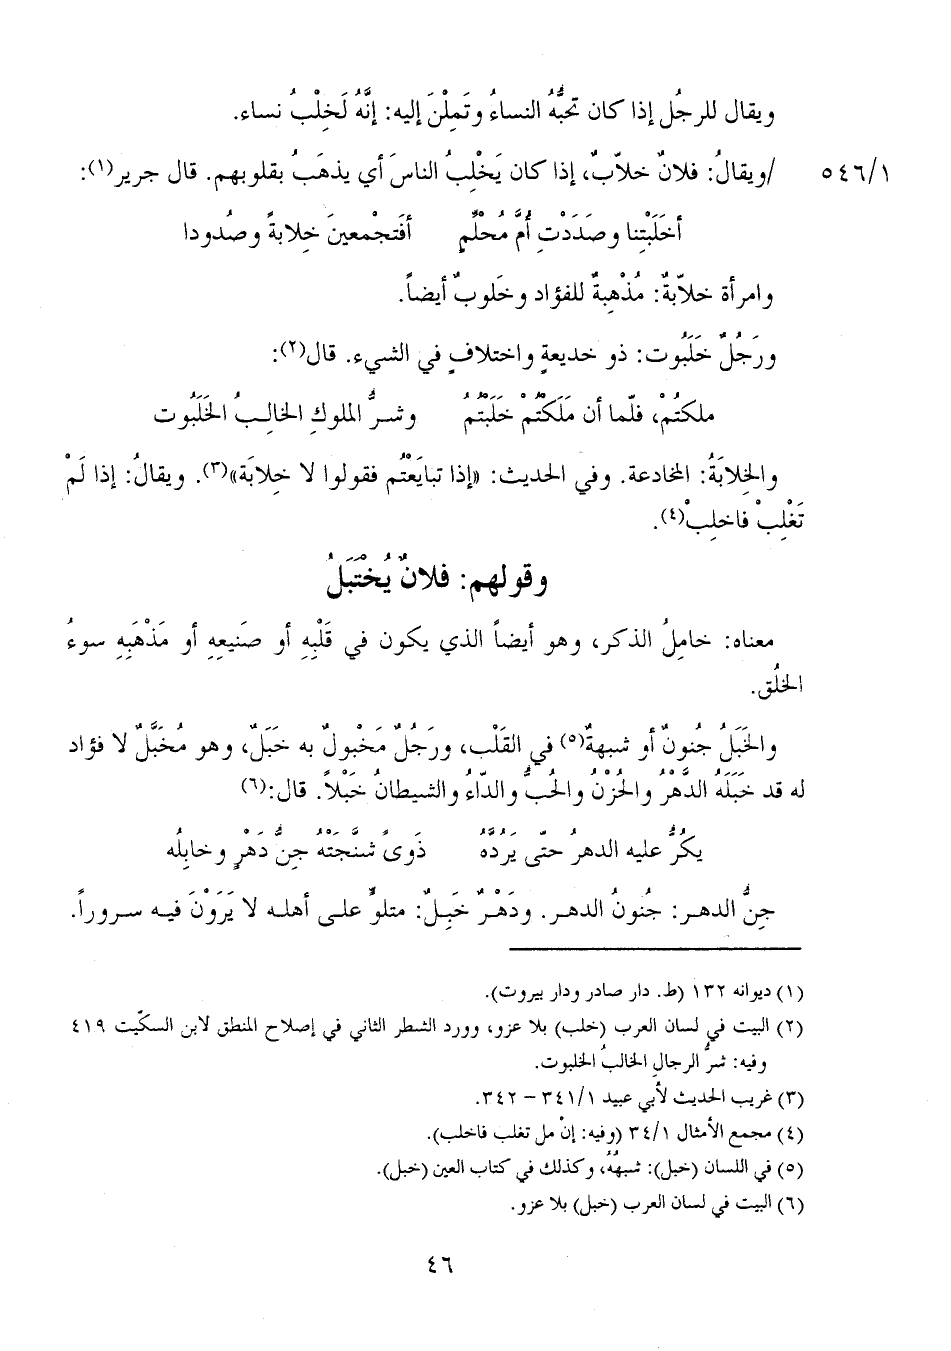 ويقال للرجُل إذا كان تحبُّهُ النساءُ وتَمِلْنَ إليه: إنَّهُ لَخِلْبُ نساء.
٥٤٦/١ /ويقالُ: فلانٌ خلاّبٌ، إذا كان يَخْلِبُ الناسَ أي يذهَبُ بقلوبهم. قال جرير(١):
أخَلَبْتِنا وصَدَدْتِ أُمَّ مُحْلِّمٍ أفَتجْمعينَ خِلابةً وصُدودا
وامرأة خلاّبةٌ: مُذْهِبةٌ للفؤاد وخَلوبٌ أيضاً.
ورَجُلٌ خَلَبُوت: ذو خديعةٍ واختلافٍ في الشيء. قال(٢):
ملكتُمْ، فلّما أن مَلَكتُمْ خَلَبْتُمُ وشـرُّ الملوكِ الخالـبُ الخَلَبُوت
والخِلابَةُ: المخادعة. وفي الحديث: «إذا تبايَعْتُم فقولوا لا خِلابَة»(٣). ويقالُ: إذا لَمْ
تَغْلِبْ فاخلِبْ(٤).
وقولهم: فلانٌ يُخْتَبَلُ
معناه: خامِلُ الذكر، وهو أيضاً الذي يكون في قَلْبِهِ أو صَنيعِهِ أو مَذْهَبِهِ سوءُ
الخلُق.
والخَبَلُ جُنونٌ أو شبهةٌ(٥) في القَلْب، ورَجُلٌ مَخْبولٌ به خَبَلٌ، وهو مُخَبَّلٌ لا فؤاد
له قد خَبَلَهُ الدَّهْرُ والحُزْنُ والحُبُّ والدّاءُ والشيطانُ خَبْلاً. قال:(٦)
يكرُّ عليه الدهرُ حتّى يَرُدَّهُ ذَوىً شنَّجَتْهُ جِنُّ دَهْرٍ وخابِلُه
جِنُّ الدهـر: جُنونُ الدهـر. ودَهْـرٌ خَبِـلٌ: متلوٍّ علـى أهلـه لا يَرَوْنَ فيـه سـروراً.
(١) ديوانه ١٣٢ (ط. دار صادر ودار بيروت).
(٢) البيت في لسان العرب (خلب) بلا عزو، وورد الشطر الثاني في إصلاح المنطق لابن السكّيت ٤١٩
وفيه: شرُّ الرجالِ الخالبُ الخلبوت.
(٣) غريب الحديث لأبي عبيد ٣٤١/١ – ٣٤٢.
(٤) مجمع الأمثال ٣٤/١ (وفيه: إنْ مل تغلب فاخلب).
(٥) في اللسان (خبل): شبهُهُ، وكذلك في كتاب العين (خبل).
(٦) البيت في لسان العرب (خبل) بلا عزو.
٤٦